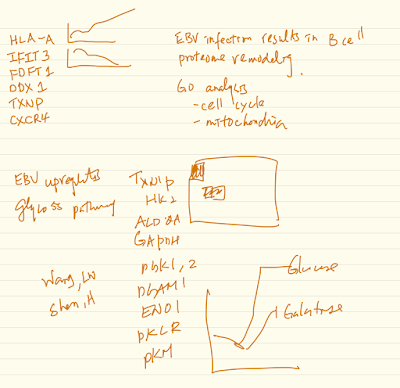 HLA-A
IFIT3
FDFT1
DDX1
TXNP
CXCR4
EBV infection results in B cell
proteome remodeling.
GO analysis
- cell cycle
- mitochondria
EBV upregulates
glycoss pathway
TXNIP
HK2
ALDOA
GAPDH
PGK1,2
PGAM1
ENO1
PKLR
PKM
Wang, LW
Shen, H
Glucose
Galactose